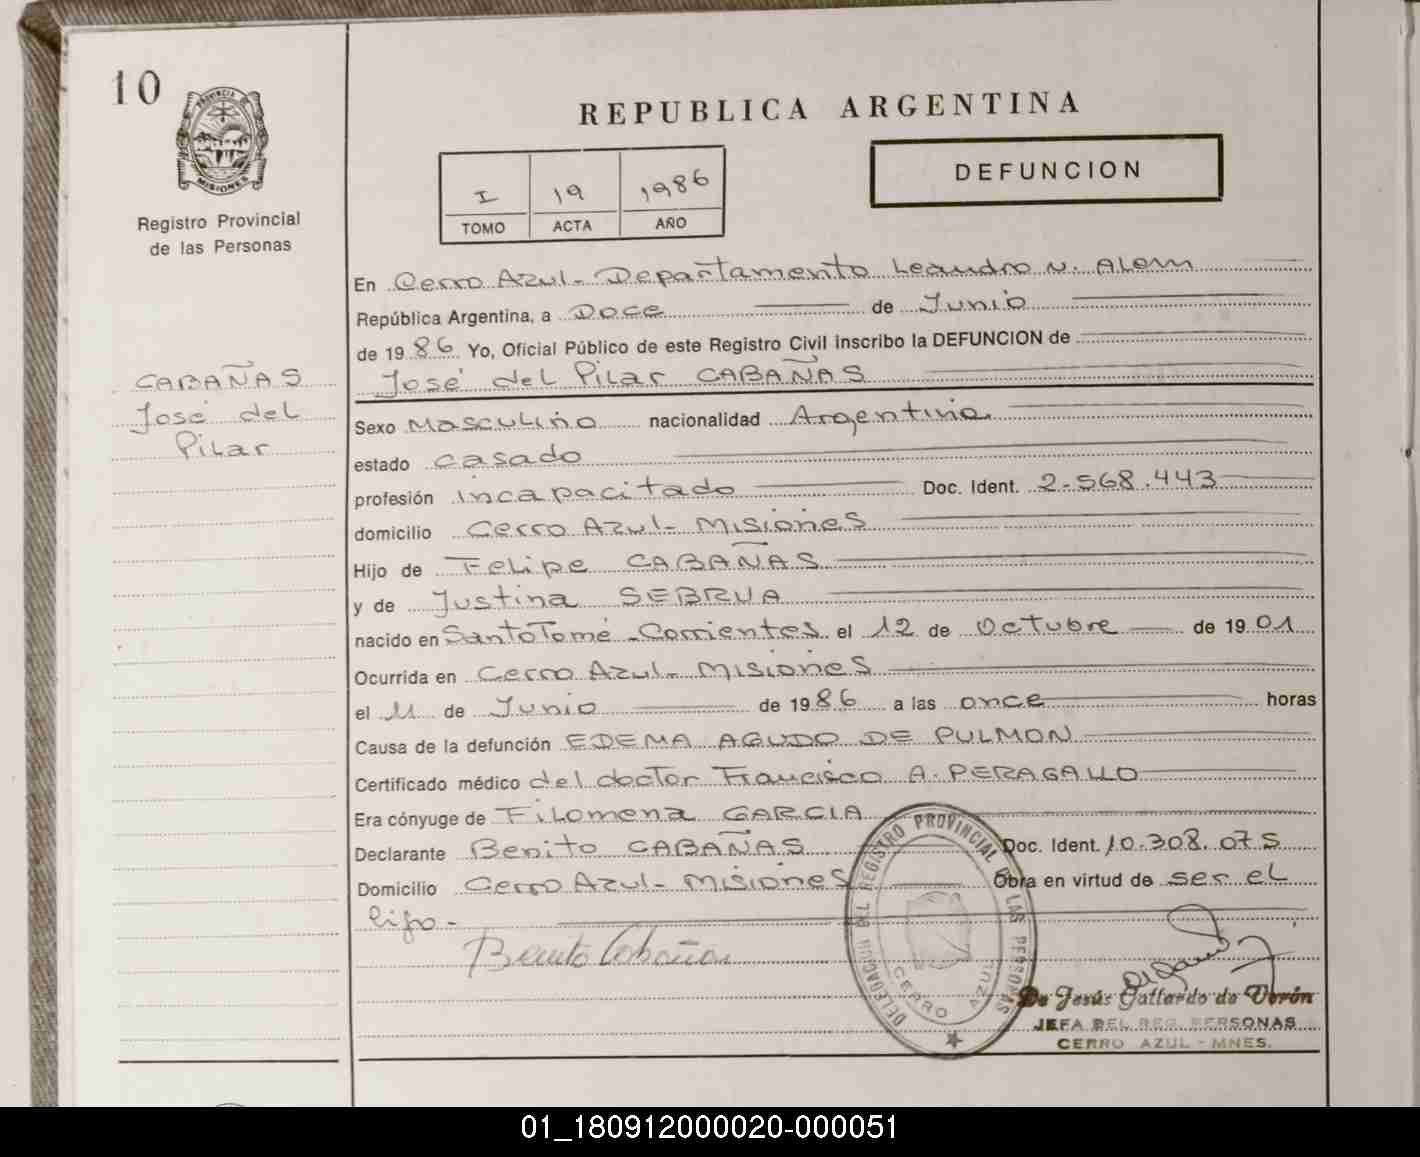 10
PROVINCIA DE
MISIONES
Registro Provincial
de las Personas
CABAÑAS
José del
Pilar
REPUBLICA ARGENTINA
I 19 1986
TOMO ACTA AÑO
DEFUNCION
En Cerro Azul - Departamento Leandro N. Alem
República Argentina, a Doce de Junio
de 1986 Yo, Oficial Público de este Registro Civil inscribo la DEFUNCION de
José del Pilar CABAÑAS
Sexo Masculino nacionalidad Argentina
estado casado
profesión incapacitado Doc. Ident. 2.568.443
domicilio Cerro Azul - Misiones
Hijo de Felipe CABAÑAS
y de Justina SEBRUA
nacido en Santo Tomé - Corrientes el 12 de Octubre de 1901
Ocurrida en Cerro Azul - Misiones
el 11 de Junio de 1986 a las once horas
Causa de la defunción EDEMA AGUDO DE PULMON
Certificado médico del doctor Francisco A. PERAGALLO
Era cónyuge de Filomena GARCIA
Declarante Benito CABAÑAS Doc. Ident. 10.308.075
Domicilio Cerro Azul - Misiones Obra en virtud de ser el
hijo -
Benito Cabañas
DELEGACION DEL REGISTRO PROVINCIAL LAS PERSONAS
CERRO AZUL
De Jesús Gallardo de Verón
JEFA DEL REG. PERSONAS
CERRO AZUL - MNES.
01_180912000020-000051